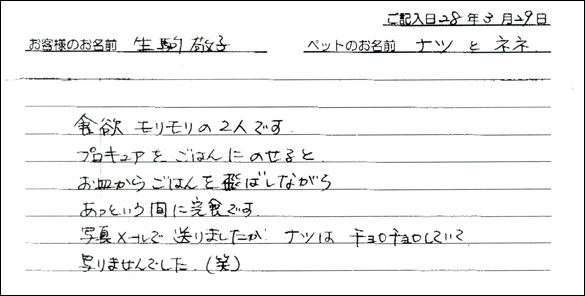 ご記入日28年3月29日
お客様のお名前 生駒敬子 ペットのお名前 ナツとネネ
食欲モリモリの2人です
プロキュアをごはんにのせると
お皿からごはんを飛ばしながら
あっという間に完食です
写真メールで送りましたが ナツは チョロチョロしていて
写りませんでした。(笑)